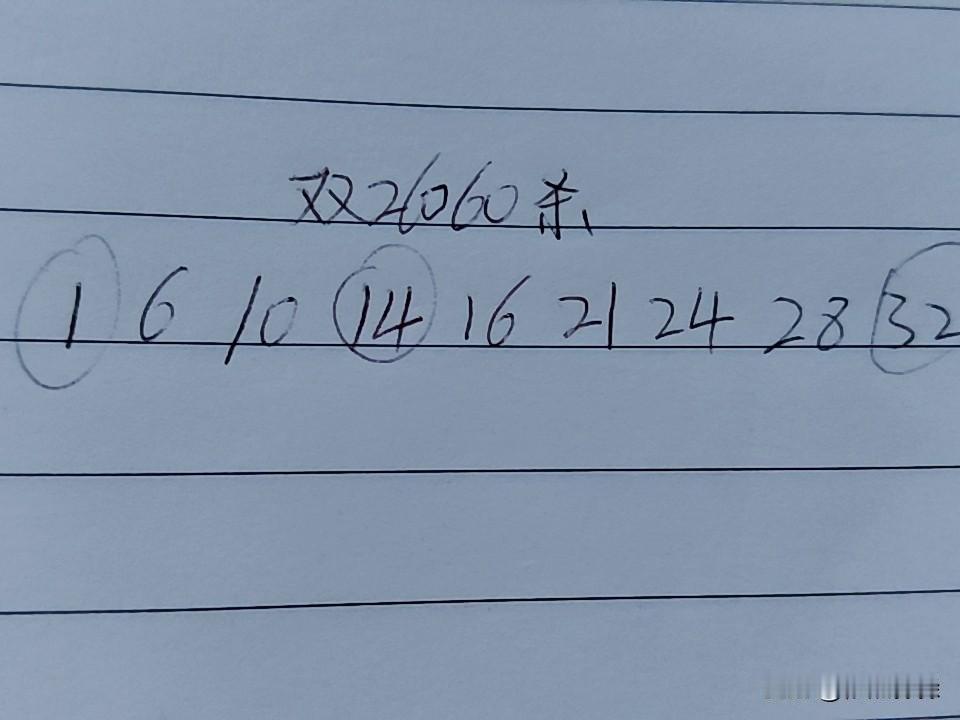 双26060杀
1 6 10 14 16 21 24 28 32